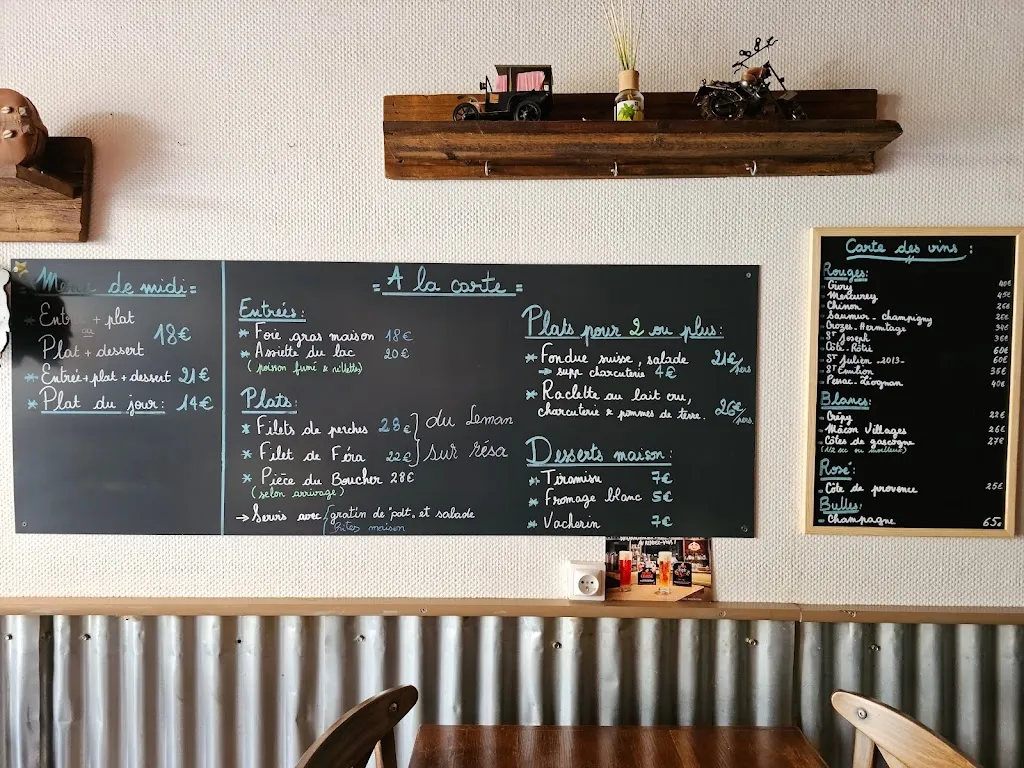 Menu de midi
Entrée + plat
ou
18€
Plat + dessert
* Entrée + plat + dessert 21€
* Plat du jour : 14€
= A la carte =
Entrées :
* Foie gras maison 18€
* Assiette du lac 20€
(poisson fumé & rillettes)
Plats :
* Filets de perches 28€
* Filet de Féra 22€
du Leman
sur résa
* Pièce du Boucher 28€
(selon arrivage)
→ Servis avec gratin de pdt. et salade
frites maison
Plats pour 2 ou plus :
* Fondue suisse, salade 21€/pers
→ supp charcuterie 4€
* Raclette au lait cru,
charcuterie & pommes de terre. 26€/pers.
Desserts maison :
* Tiramisu 7€
* Fromage blanc 5€
* Vacherin 7€
Carte des vins :
Rouges :
- Givry 40€
- Mercurey 45€
- Chinon 26€
- Saumur - champigny 28€
- Crozes - Hermitage 30€
- St Joseph 36€
- Côte - Rôtie 60€
- St Julien - 2013 - 60€
- St Emilion 35€
- Pessac - Léognan 40€
Blancs :
- Crépy 22€
- Mâcon Villages 26€
- Côtes de gascogne 27€
(1/2 sec ou moelleux)
Rosé :
- Côte de provence 25€
Bulles :
- Champagne 65€